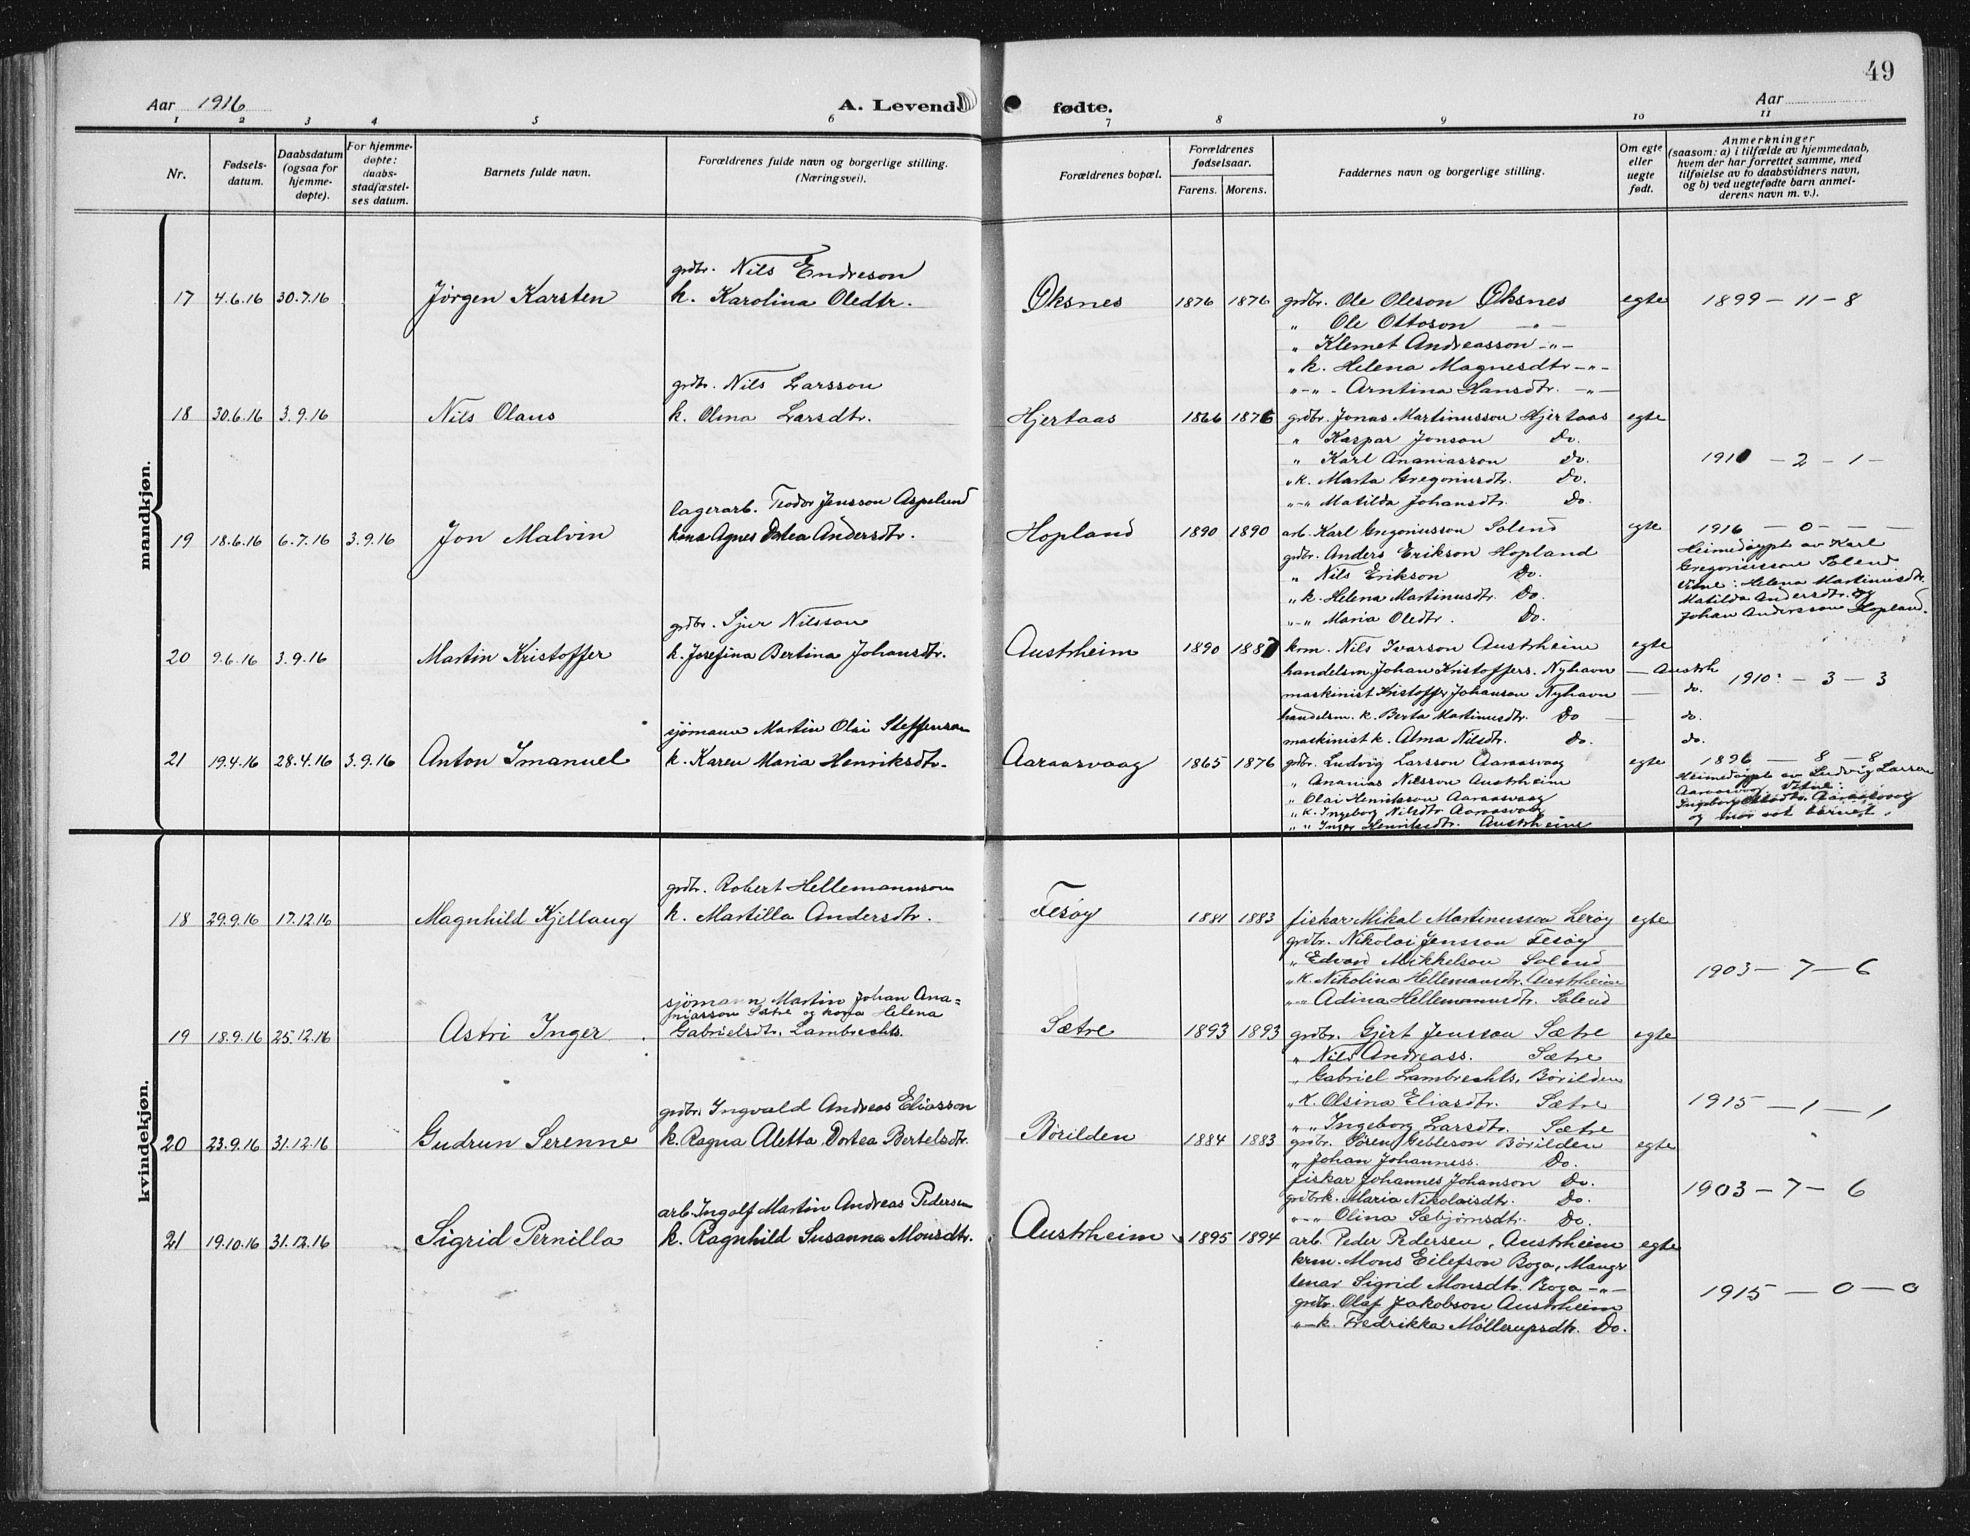 49
Aar 1916
A. Levende fødte.
Aar
1 2 3 4 5 6 7 8 9 10 11
Nr.
Fødsels-
datum.
Daabsdatum
(ogsaa for
hjemme-
døpte).
For hjemme-
døpte:
daabs-
stadfæstel-
ses datum.
Barnets fulde navn.
Forældrenes fulde navn og borgerlige stilling.
(Næringsvei).
Forældrenes bopæl.
Forældrenes
fødselsaar.
Farens. Morens.
Faddernes navn og borgerlige stilling.
Om egte
eller
uegte
født.
Anmerkninger
(saasom: a) i tilfælde av hjemmedaab,
hvem der har forrettet samme, med
tilføielse av to daabsvidners navn,
og b) ved uegtefødte barn anmel-
derens navn m. v.).
mandkjøn.
grdbr. Nils Endreson
17 4.6.16 30.7.16 Jørgen Karsten k. Karolina Oledtr. Oksnes 1876 1876 grdbr. Ole Oleson Oksnes egte 1899 – 11 – 8
" Ole Ottoson –"–
" Klemet Andreasson –"–
" k. Helena Magnesdtr –"–
"–"– Arntina Hansdtr. –"–
grdbr. Nils Larsson
18 30.6.16 3.9.16 Nils Olaus k. Olina Larsdtr. Hjertaas 1866 1876 grdbr. Jonas Martinusson Hjertaas egte
" Kaspar Jonson Do.
" Karl Ananiasson Do. 1910 – 2 – 1 –
"k. Marta Gregoriusdtr. Do.
"–" Matilda Johansdtr. Do.
lagerarb. Teodor Jensson Aspelund
19 18.6.16 6.7.16 3.9.16 Jon Malvin kona Agnes Dotea Andersdtr. Hopland 1890 1890 arb. Karl Gregoriusson Solend egte 1916 – 0 – – –
grdbr. Anders Erikson Hopland Heimedøypt av Karl
" Nils Erikson Do. Gregoriusson Solend
" k. Helena Martinusdtr. Do. Vitne: Helena Martinusdtr.
"–" Maria Oledtr. Do. Matilda Andersdtr. og
Johan Andersson Hopland.
grdbr. Sjur Nilsson
20 9.6.16 3.9.16 Martin Kristoffer k. Josefina Bertina Johansdtr. Austrheim 1890 1887 krm. Nils Ivarson Austrheim egte
handelsm. Johan Kristoffers. Nyhavn — Austrh
maskinist Kristoffer Johanson Nyhavn — do. 1910: – 3 – 3
handelsm. k. Berta Martinusdtr. Do — do.
maskinist k. Alma Nilsdtr. Do. do.
sjömann Martin Olai Steffenson
21 19.4.16 28.4.16 3.9.16 Anton Imanuel k. Karen Maria Henriksdtr. Aaraasvaag 1865 1876 grdbr. Ludvig Larsson Aaraasvaag egte 1896 – 8 – 8
" Ananias Nilsson Austrheim Heimedøypt av Ludvig Larsson
" Olai Henrikson Aaraasvaag Aaraasvaag. Vitne:
" k. Ingeborg Nilsdtr Aaraasvaag Ingeborg Nilsdtr. Aaraasvaag
" " Inger Henriksdtr. Austrheim og mor aat barnet.
kvindekjøn.
grdbr. Robert Hellemannson
18 29.9.16 17.12.16 Magnhild Kjellaug k. Martilla Andersdtr. Fesøy 1881 1883 fiskar Mikal Martinusson Lerøy egte
grdbr. Nikolai Jensson Fesøy
" Edvard Mikkelson Solend
"k. Nikolina Hellemansdtr. Austrheim 1903 – 7 – 6
"–" Adina Hellemannsdtr. Solend
sjömann Martin Johan Ana-
niasson Sætre og kona Helena
19 18.9.16 25.12.16 Astri Inger Gabrielsdtr. Lambrechts. Sætre 1893 1893 grdbr. Gjert Jensson Sætre egte
" Nils Andreass. Sætre
" Gabriel Lambrechts, Börilden
"k. Olsina Eliasdtr. Sætre 1915 – 1 – 1
" " Ingeborg Larsdtr. Sætre
grdbr. Ingvald Andreas Eliasson
20 23.9.16 31.12.16 Gudrun Serenne k. Ragna Aletta Dortea Bertelsdtr. Börilden 1884 1883 grdbr. Søren Gebleson Börilden egte
" Johan Johanness. Do.
fiskar Johannes Johanson Do.
grdbrk. Maria Nikolaisdtr. Do. 1903 – 7 – 6
"–" Olina Sæbjørnsdtr. Do.
arb. Ingolf Martin Andreas Pedersen
21 19.10.16 31.12.16 Sigrid Pernilla k. Ragnhild Susanna Monsdtr. Austrheim 1895 1894 arb. Peder Pedersen, Austrheim egte
krm. Mons Eilefson Boga, Mangr
tenar Sigrid Monsdtr. Boga –"– 1915 – 0 – 0
grdbr. Olaf Jakobson Austrheim
"–k. Fredrikka Møllerupsdtr. Do.